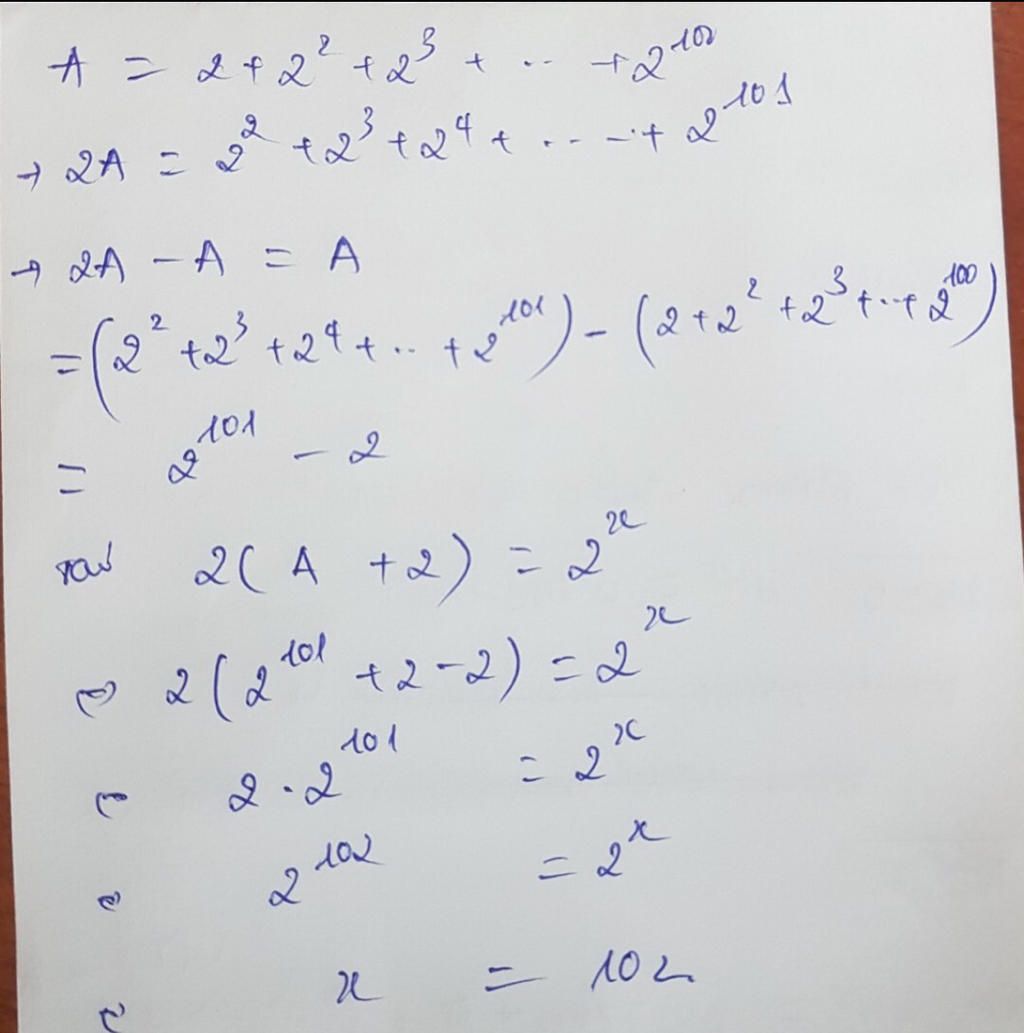 A = 2 + 2² + 2³ + ... + 2¹⁰⁰
→ 2A = 2² + 2³ + 2⁴ + ... + 2¹⁰¹
→ 2A - A = A
= (2² + 2³ + 2⁴ + .. + 2¹⁰¹) - (2 + 2² + 2³ + ... + 2¹⁰⁰)
= 2¹⁰¹ - 2
2(A + 2) = 2ˣ
⇔ 2(2¹⁰¹ + 2 - 2) = 2ˣ
⇔ 2 · 2¹⁰¹ = 2ˣ
⇔ 2¹⁰² = 2ˣ
⇔ x = 102